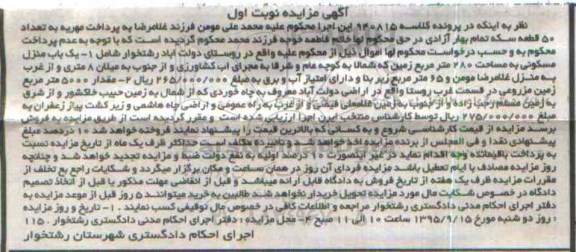 آگهی مزایده نوبت اول
نظر به اینکه در پرونده کلاسه ۹۴۰۸۱۵ این اجرا محکوم علیه محمد علی مومن فرزند غلامرضا به پرداخت مهریه به تعداد
۵۰ قطعه سکه تمام بهار آزادی در حق محکوم لها خانم فاطمه خوجه فرزند محمد محکوم گردیده است که با توجه به عدم پرداخت
محکوم به و حسب درخواست محکوم لها اموال ذیل از محکوم علیه واقع در روستای دولت آباد رشتخوار شامل ۱- یک باب منزل
مسکونی به مساحت ۲۸۰ متر مربع زمین که شمالا به کوچه عام و شرقا به مجرای آب کشاورزی و از جنوب به میلان ۸ متری و از غرب
به منزل غلامرضا مومن و ۶۵ متر مربع زیر بنا و دارای امتیاز آب و برق به مبلغ ۲۶۵/۰۰۰/۰۰۰ ریال ۲- مقدار ۵۰۰۰ متر مربع
زمین مزروعی در قسمت غرب روستا واقع در اراضی دولت آباد معروف به چاه خوردی که از شمال به زمین حبیب خاکشور و از شرق
به زمین مسلم رجب زاده و از جنوب به زمین غلامعلی فیضی و از غرب به راه عمومی و اراضی چاه هاشمی و زیر کشت پیاز زعفران به
مبلغ ۲۷۵/۰۰۰/۰۰۰ ریال توسط کارشناس منتخب این اجرا ارزیابی شده است و مقرر گردیده است از طریق مزایده به فروش
برسد مزایده از قیمت کارشناسی شروع و به کسانی که بالاترین قیمت را پیشنهاد نمایند فروخته خواهد شد ۱۰ درصد مبلغ
پیشنهادی نقدا و فی المجلس از برنده مزایده اخذ خواهد شد و نامبرده مکلف است حداکثر ظرف یک ماه از تاریخ مزایده نسبت
به پرداخت باقیمانده وجه اقدام نماید در غیر اینصورت ۱۰ درصد اولیه به نفع دولت ضبط و مزایده تجدید خواهد شد و چنانچه
روز مزایده مصادف با ایام تعطیل باشد مزایده فردای آن روز در همان ساعت و مکان برگزار میگردد و شکایات راجع به تخلف از
مقررات مزایده ظرف یک هفته از تاریخ فروش به دادگاه قابل ارائه میباشد و قبل از انقضای مهلت مذکور یا قبل از اتخاذ تصمیم
دادگاه در خصوص شکایات مال مورد مزایده تحویل خریدار نخواهد شد طالبین به خرید میتوانند ۵ روز قبل از موعد مزایده به
دفتر اجرای احکام مدنی دادگستری رشتخوار مراجعه و اطلاعات کافی در خصوص مال توقیفی کسب نمایند . ۱- تاریخ و روز مزایده
: روز دو شنبه مورخ ۱۳۹۵/۹/۱۵ ساعت ۱۰ الی ۱۱ صبح ۲- محل مزایده : دفتر اجرای احکام مدنی دادگستری رشتخوار . ۱۱۵
اجرای احکام دادگستری شهرستان رشتخوار